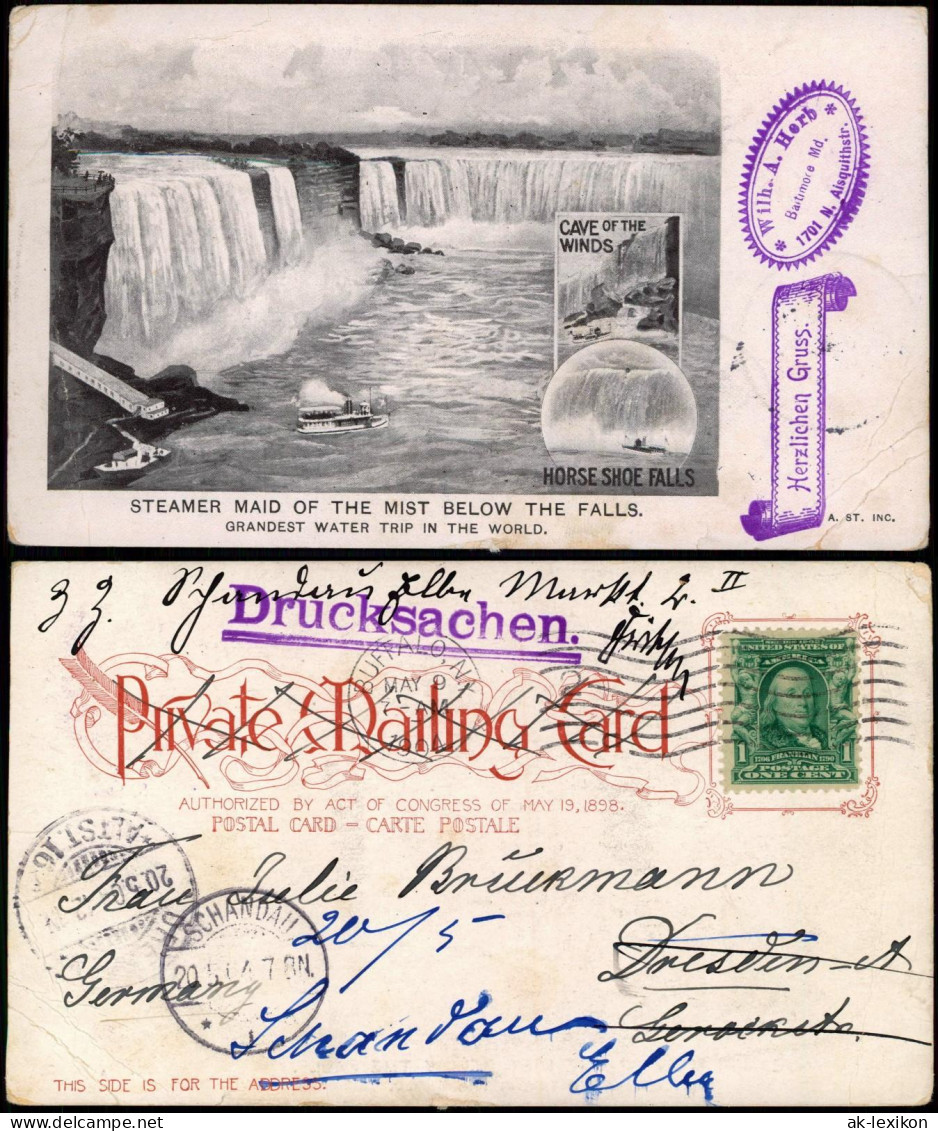 CAVE OF THE
WINDS
HORSE SHOE FALLS
STEAMER MAID OF THE MIST BELOW THE FALLS.
GRANDEST WATER TRIP IN THE WORLD.
* Wilh. A. Herb *
Baltimore Md.
1701 N. Aisquithstr.
Herzlichen Gruss.
A. ST. INC.
Schandau Elbe Markt 2 II
Drucksachen.
BUFFALO, N.Y.
MAY 9
1904
Private Mailing Card
UNITED STATES OF
AMERICA
1706 FRANKLIN 1790
1 POSTAGE 1
ONE CENT
AUTHORIZED BY ACT OF CONGRESS OF MAY 19, 1898.
POSTAL CARD – CARTE POSTALE
ALTST. 16
20.5.
Frau Julie Brückmann
SCHANDAU
20.5.04. 7-8N.
20/5
Dresden-A
Germany
Gerockstr.
Schandau
Elbe
THIS SIDE IS FOR THE ADDRESS.
ak-lexikon